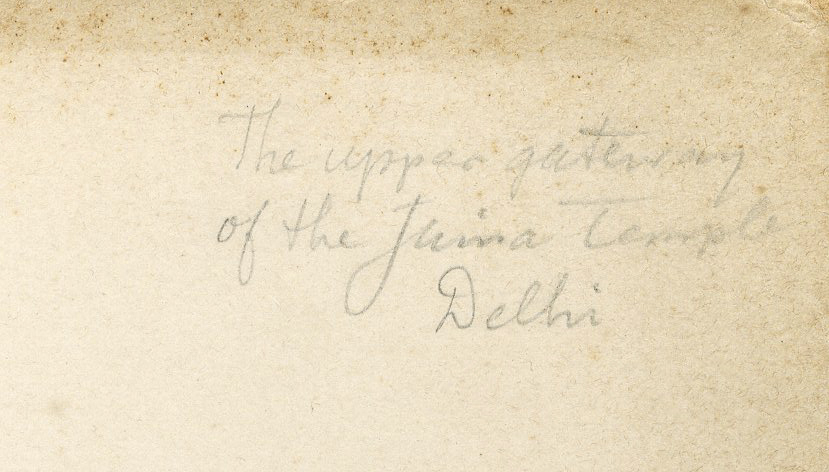 The upper gateway
of the Jaina Temple
Delhi